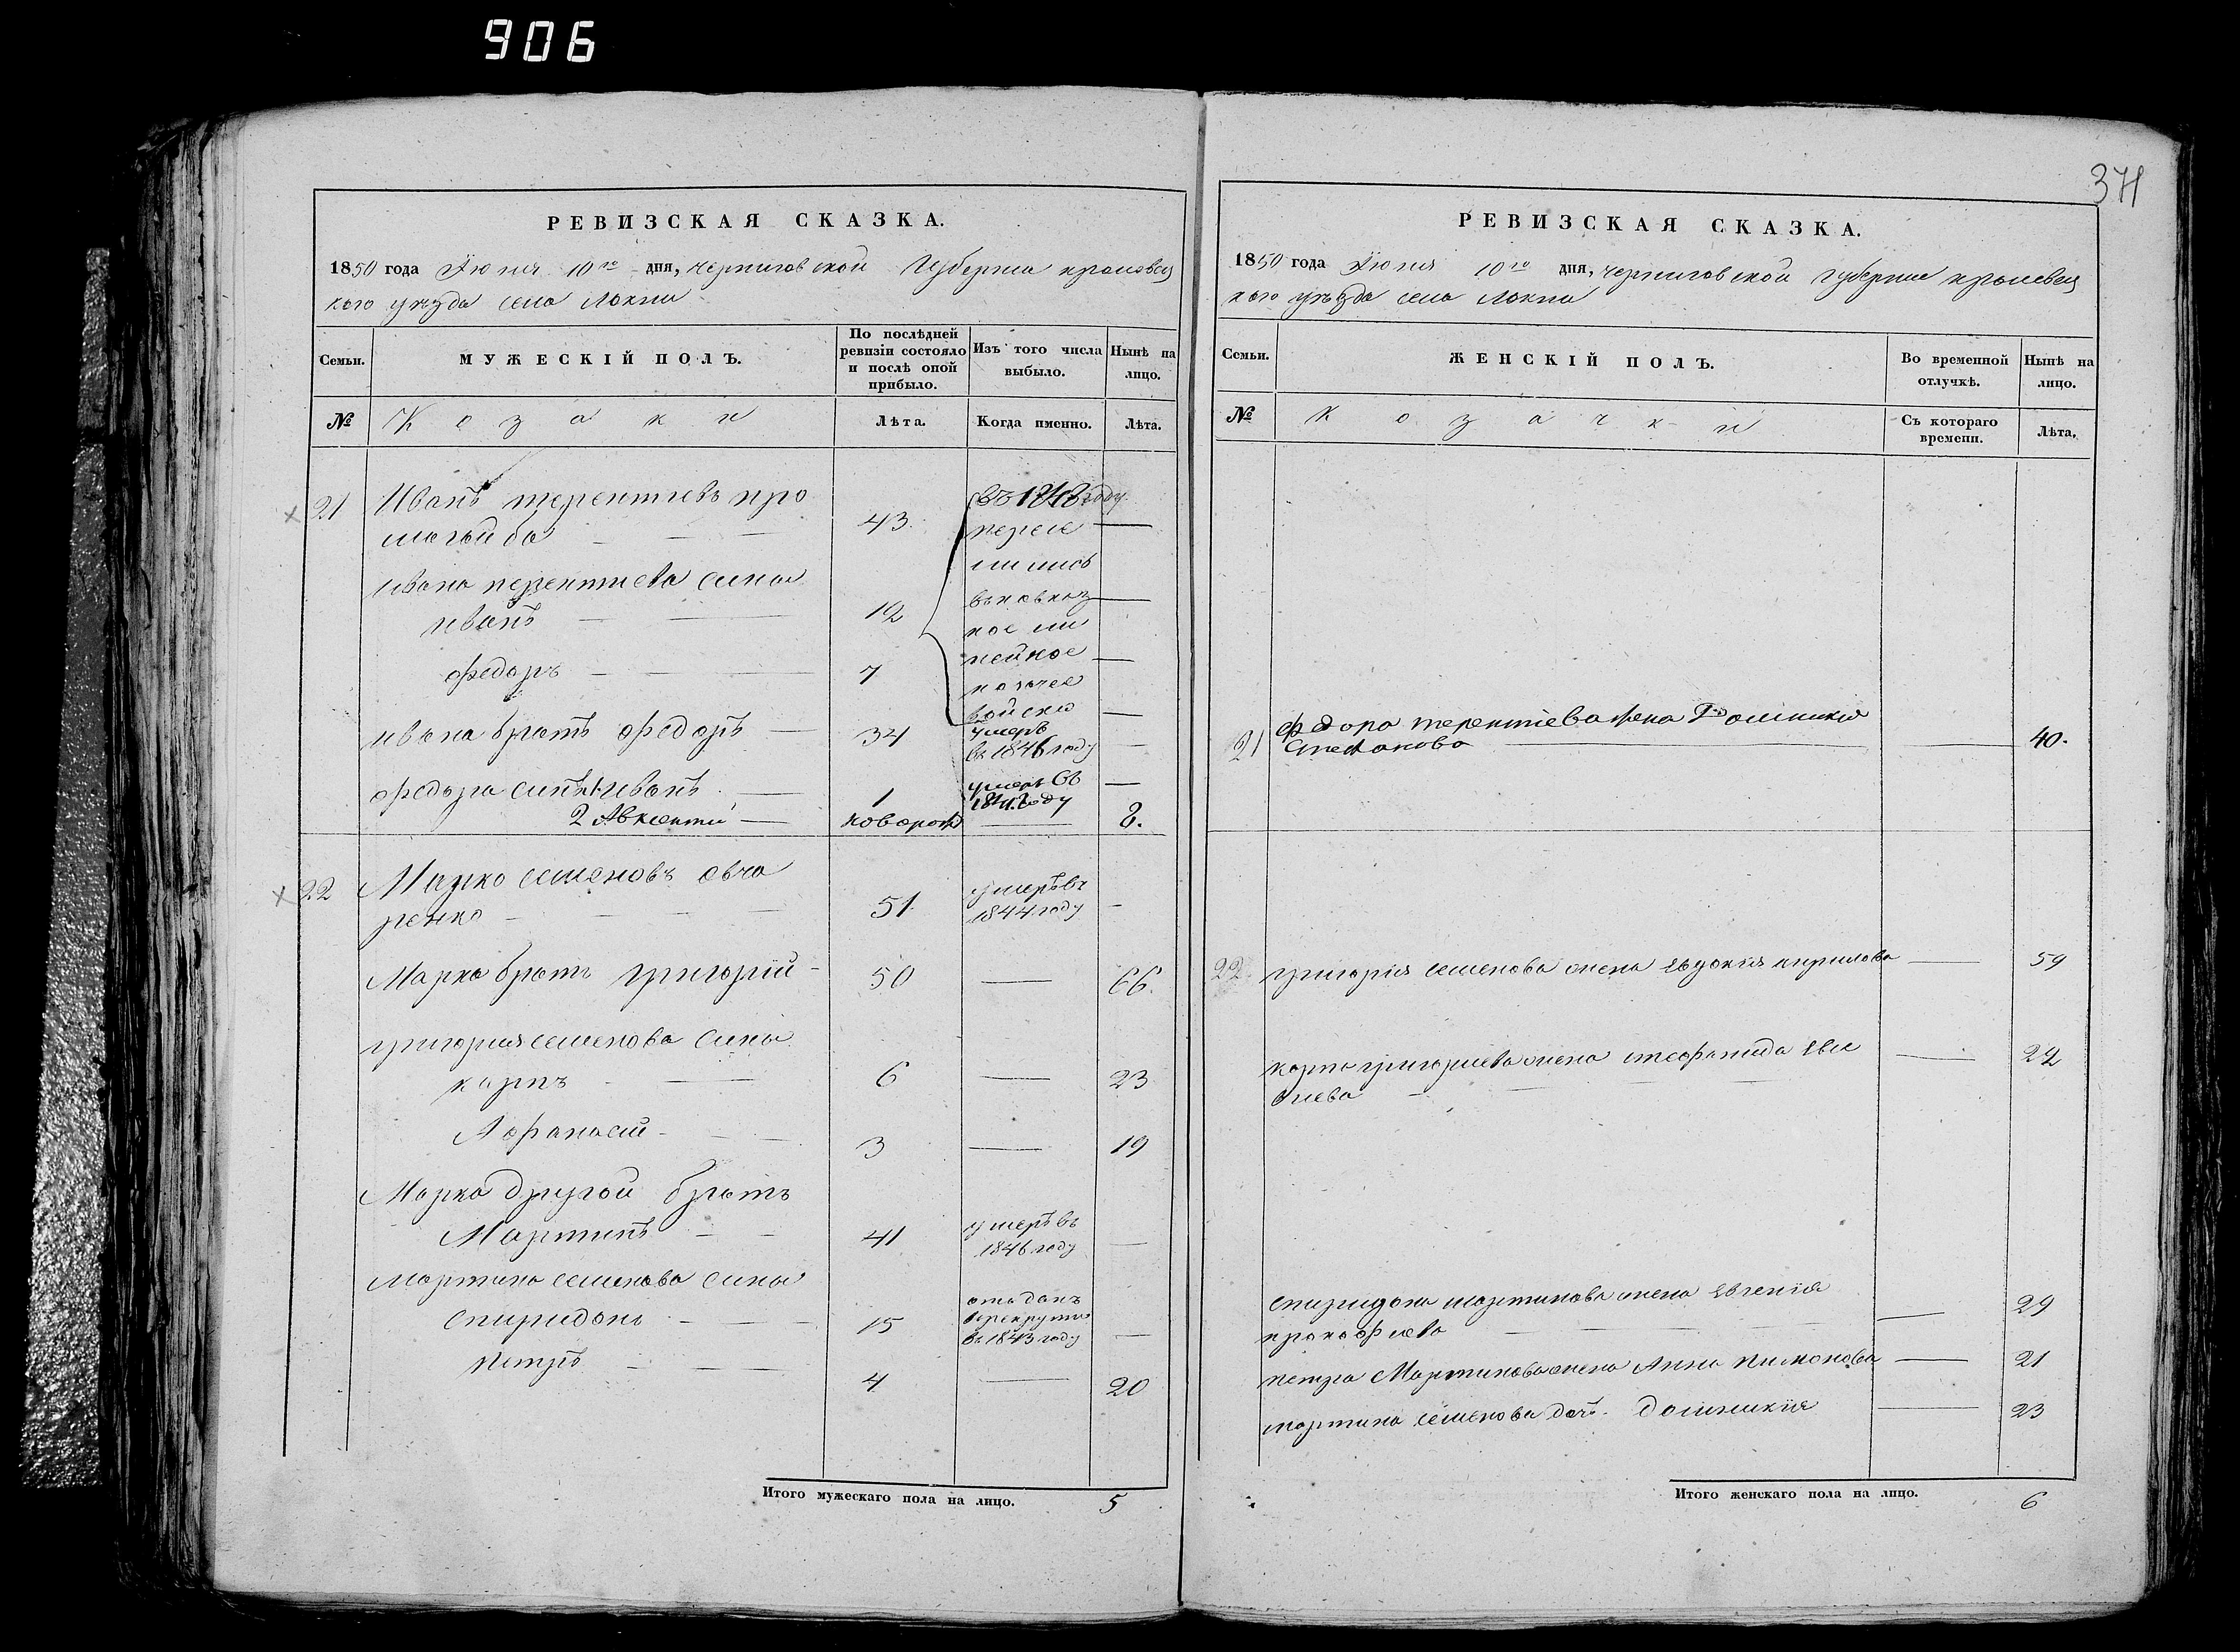 906
371
РЕВИЗСКАЯ СКАЗКА.
1850 года Июня 10го дня, черниговской Губернии кролевец
кого уезда села Локни
Семьи.
МУЖЕСКІЙ ПОЛЪ.
По послѣдней ревизіи состояло и послѣ оной прибыло.
Изъ того числа выбыло.
Нынѣ на лицо.
№
Козаки
Лѣта.
Когда именно.
Лѣта.
21 Иванъ терентиевъ про
43
ивана терентиева сины
иванъ — 12
федоръ — 7
въ 1848 году
пересе
лились
въ кавказ
кое ли
нейное
козачее
войско
ивана братъ федоръ — 34 умеръ
въ 1846 году —
федора синъ 1 иванъ — 1 умеръ въ
184 году —
2 Авксентий — новорож — 8.
22 Марко семеновъ овча
ренко — 51 умеръ въ
1844 году —
Марка братъ григорій — 50 — 66.
григория семенова сины
карпъ — 6 — 23
Афанасий — 3 — 19
Марка другой братъ
Мартинъ — 41 умеръ въ
1846 году —
мартина семенова сины
спиридонъ — 15 отаданъ
в рекруты
въ 1843 году —
петръ — 4 — 20
Итого мужескаго пола на лицо. 5
РЕВИЗСКАЯ СКАЗКА.
1850 года Июня 10го дня, черниговской губернии кролевец
кого уезда села Локни
Семьи.
ЖЕНСКІЙ ПОЛЪ.
Во временной отлучкѣ.
Нынѣ на лицо.
№
Козачки
Съ котораго времени.
Лѣта.
21 федора терентіева жена
Степанова — 40.
22 григория семенова жена Евдокія кирилова — 59
карпа григориева жена стефанида Евс
виева — 22
спиридона мартинова жена Евгенія
прокофиева — 29
петра Мартинова жена Анна пимонова — 21
мартина семенова дочь домникия — 23
Итого женскаго пола на лицо. 6